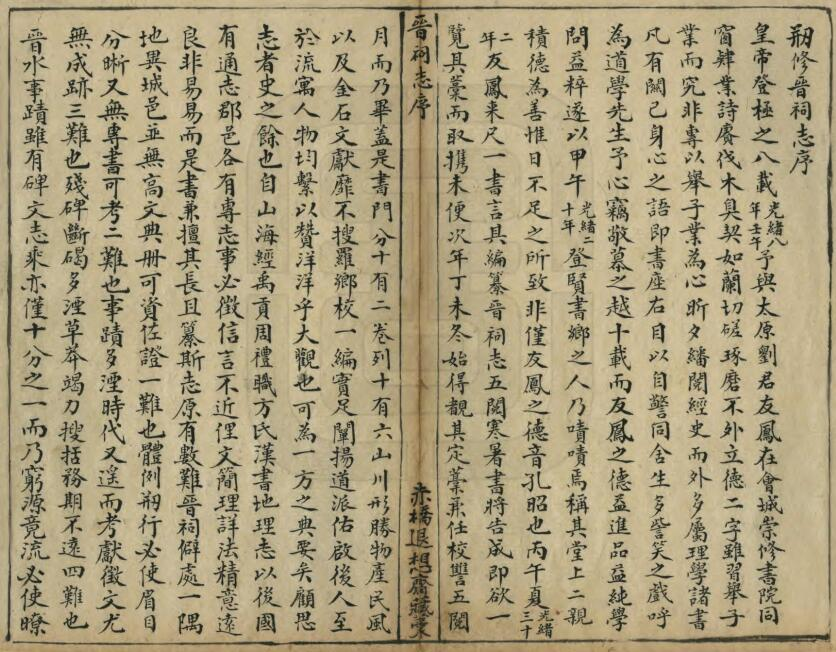 刱修晉祠志序
皇帝登極之八載光緒八年壬午予與太原劉君友鳳在會城崇修書院同
窗肄業詩賡伐木臭契如蘭切磋琢磨不外立德二字雖習舉子
業而究非專以舉子業為心昕夕繙閱經史而外多屬理學諸書
凡有關己身心之語即書座右目以自警同舍生多訾笑之戲呼
為道學先生予心竊敬慕之越十載而友鳳之德益進品益純學
問益粹遂以甲午光緒二十年登賢書鄉之人乃嘖嘖焉稱其堂上二親
積德為善惟日不足之所致非僅友鳳之德音孔昭也丙午夏光緒三十
二年友鳳来尺一書言其編纂晉祠志五閱寒暑書將告成即欲一
覽其藁而取攜未便次年丁未冬始得覩其定藁兼任校讐五閱
晉祠志序
赤橋退想齋藏藁
月而乃畢蓋是書門分十有二卷列十有六山川形勝物產民風
以及金石文獻靡不搜羅鄉校一編實足闡揚道派佑啟後人至
於流寓人物均繫以贊洋洋乎大觀也可為一方之典要矣顧思
志者史之餘也自山海經禹貢周禮職方氏漢書地理志以後國
有通志郡邑各有專志事必徵信言不近俚文簡理詳法精意遠
良非易易而是書兼擅其長且纂斯志原有數難晉祠僻處一隅
地異城邑並無高文典册可資佐證一難也體例刱行必使眉目
分晰又無專書可考二難也事蹟多湮時代又遥而考獻徵文尤
無成跡三難也殘碑斷碣多湮草莽竭力搜括務期不遠四難也
晉水事蹟雖有碑文志乘亦僅十分之一而乃窮源竟流必使暸